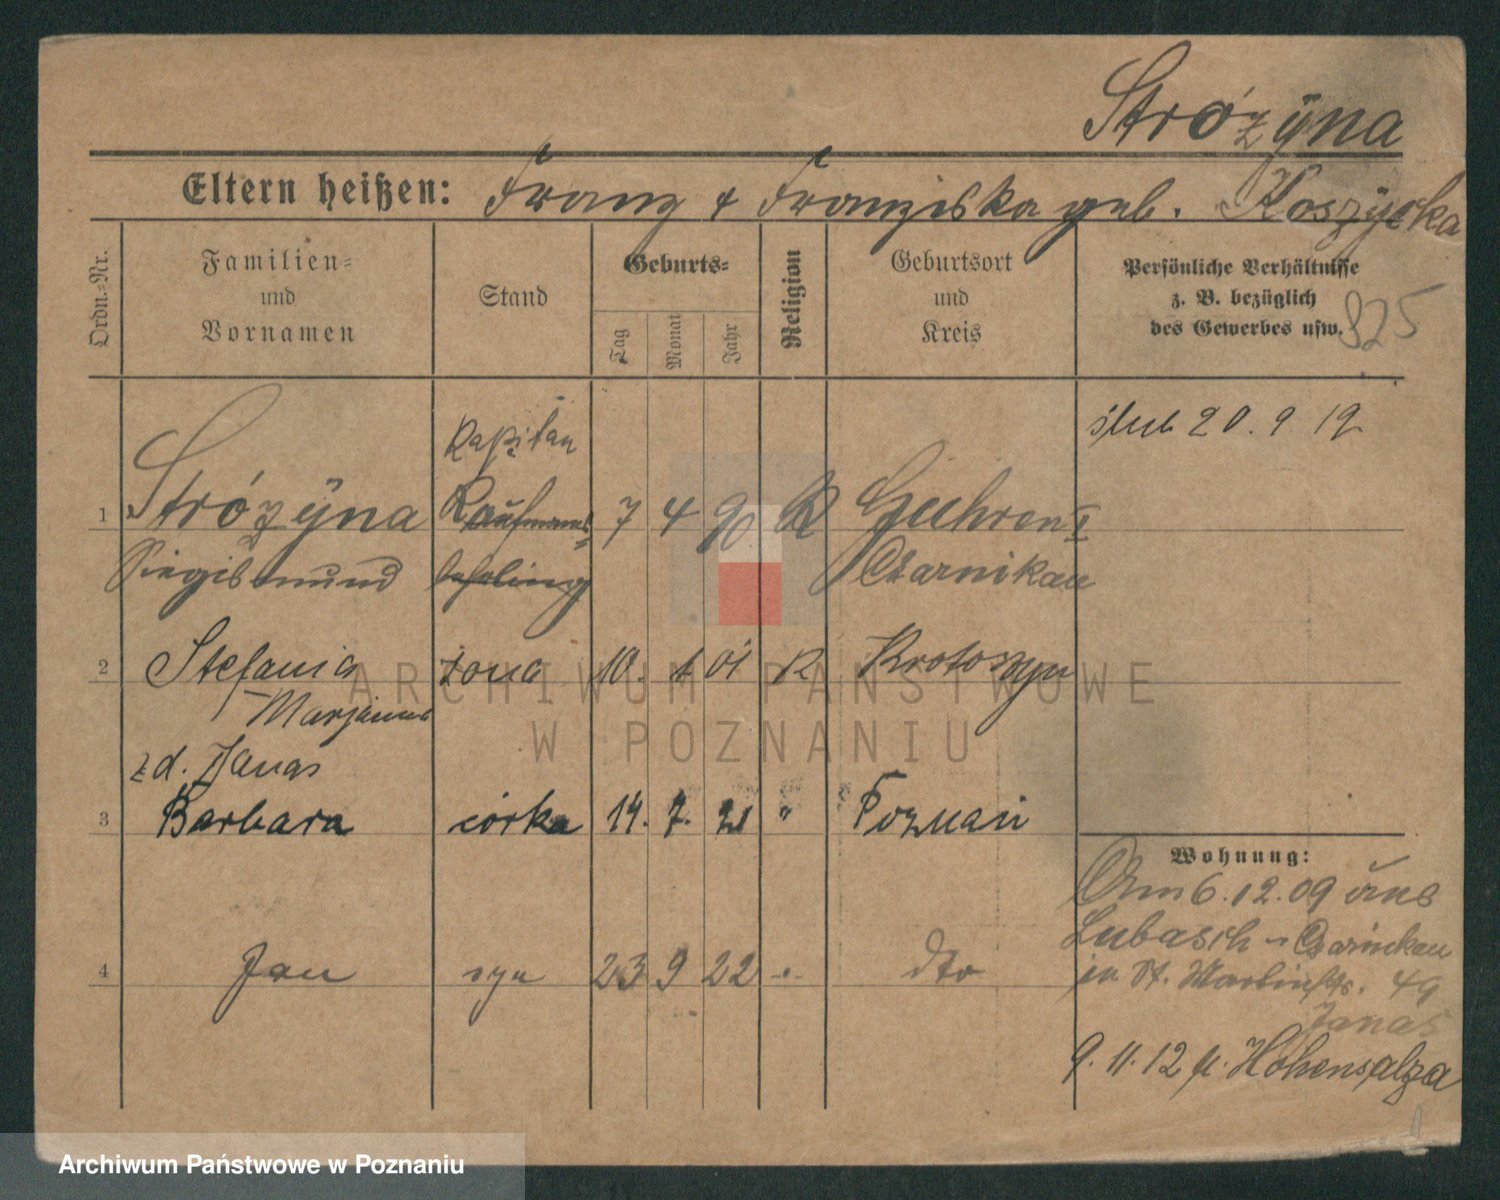 Strózÿna
Eltern heißen: Franz & Franziska geb. Koszycka
Ordn.-Nr.
Familien-
und
Vornamen
Stand
Geburts-
Tag
Monat
Jahr
Religion
Geburtsort
und
Kreis
Persönliche Verhältnisse
z. B. bezüglich
des Gewerbes usw.
925
ślub 20. 9 19
Kapitan
1 Strózÿna Kaufmanns= 7 4 90 K Guhren I
Siegismund lehrling Czarnikau
2 Stefania żona 10. 1 01 R Krotoszyn
Marjanna
zd. Janas
3 Barbara córka 14. 7. 21 " Poznań
Wohnung:
Am 6. 12. 09 aus
Lubasch - Czarnikau
4 Jan syn 23 9 22 -"- dto
in St. Martinstr. 49
Janas
9. 11. 12 n. Hohensalza
ARCHIWUM PAŃSTWOWE
W POZNANIU
Archiwum Państwowe w Poznaniu